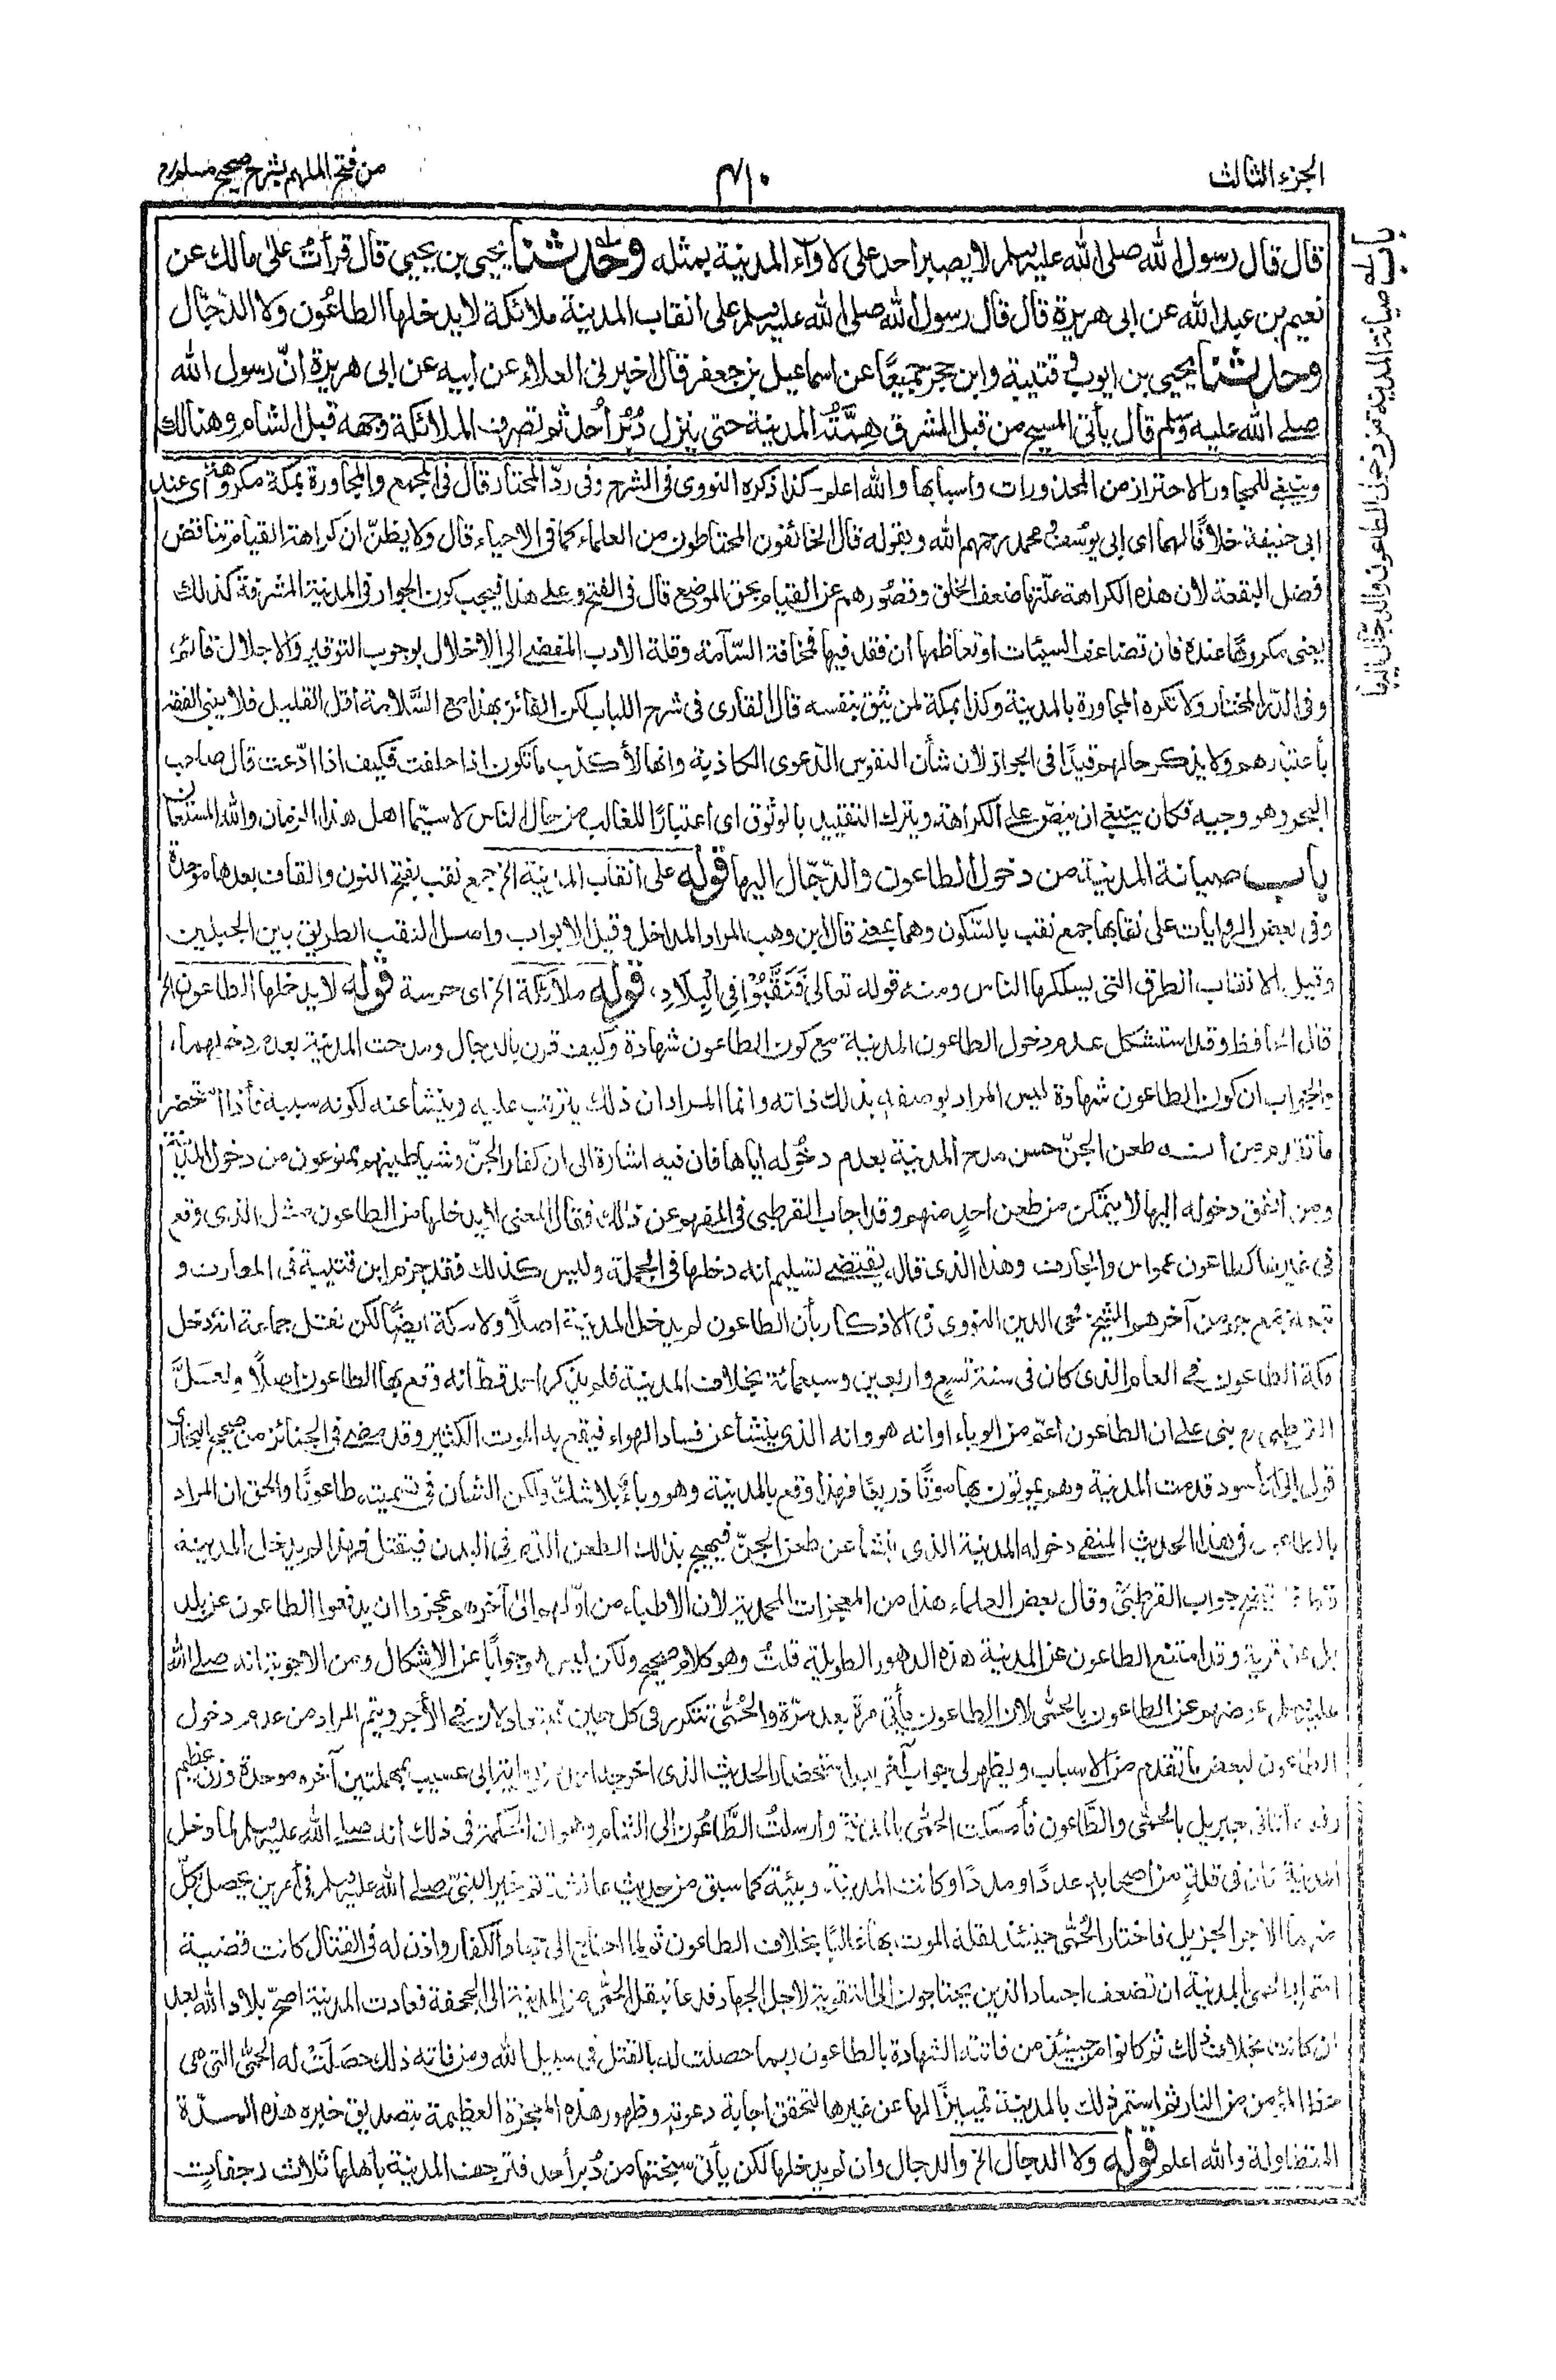 الجزء الثالث
٤١٠
من فتح الملهم بشرح صحيح مسلم
باب صيانة المدينة من دخول الطاعون والدجال اليها
قال قال رسول الله صلى الله عليه وسلم لا يصبر احد على لاوآء المدينة بمثله وحدثنا يحيى بن يحيى قال قرأت على مالك عن
نعيم بن عبد الله عن ابى هريرة قال قال رسول الله صلى الله عليه وسلم على انقاب المدينة ملائكة لا يدخلها الطاعُون ولا الدّجّال
وحدثنا يحيى بن ايوب وقتيبة وابن حجر جميعًا عن اسماعيل بن جعفر قال اخبرنى العلاء عن ابيه عن ابى هريرة انّ رسول الله
صلى الله عليه وسلم قال يأتى المسيح من قبل المشرق هِمَّتُه المدينة حتى ينزل دُبُر اُحد ثم تصرف الملائكة وجهه قبل الشام وهنالك
وينبغى للمجاور الاحتراز من المحذورات واسبابها والله اعلم۔ كذا ذكره النووى فى الشرح وفى ردّ المختار قال فى المجمع والمجاورة بمكة مكروهة اى عند
ابى حنيفة خلافًا لهما اى ابى يوسف ومحمد رحمهم الله وبقوله قال الخائفون المحتاطون من العلماء كما فى الاحياء قال ولا يظنّ ان كراهة القيام تناقض
فضل البقعة لان هذه الكراهة علّتها ضعف الخلق وقصُورهم عن القيام بحق الموضع قال فى الفتح وعلى هذا فيجب كون الجوار فى المدينة المشرفة كذلك
يعنى مكروهًا عنده فان تضاعف السيئات او تعاظمها ان فقد فيها فمخافة السّآمة وقلة الادب المفضى الى الاخلال بوجوب التوقير والاجلال قائم،
وفى الدّر المختار ولا تكره المجاورة بالمدينة وكذا بمكة لمن يثق بنفسه قال القارى فى شرح اللباب لكن الفائز بهذا مع السّلامة اقل القليل فلا يبنى الفقه
بأعتبارهم ولا يذكر حالهم قيدًا فى الجواز لان شأن النفوس الدّعوى الكاذبة وانها لأكذب ما تكون اذا حلفت فكيف اذا ادّعت قال صاحب
البحر وهو وجيه فكان ينبغى ان ينصّ على الكراهة ويترك التقييد بالوثوق اى اعتبارًا للغالب من حال الناس لا سيّما اهل هذا الزمان والله المستعان
باب صيانة المدينة من دخول الطاعون والدّجّال اليها قوله على انقاب المدينة الخ جمع نقب بفتح النون والقاف بعدها موحدة
وفى بعض الروايات على نقابها جمع نقب بالسّكون وهما بمعنى قال ابن وهب المراد المداخل وقيل الابواب واصل النقب الطريق بين الجبلين
وقيل الانقاب الطرق التى يسلكها الناس ومنه قوله تعالى فَنَقَّبُوْا فِى الْبِلَادِ، قوله ملائكة الخ اى حرسة قوله لا يدخلها الطاعون الخ
قال الحافظ وقد استشكل عدم دخول الطاعون المدينة مع كون الطاعون شهادة وكيف قرن بالدجال ومدحت المدينة بعدم دخولهما،
والجواب ان كون الطاعون شهادة ليس المراد بوصفه بذلك ذاته وانما المراد ان ذلك يترتب عليه وينشأ عنه لكونه سببه فأذا استحضر
ما تقدم من انه طعن الجنّ حسن مدح المدينة بعدم دخُوله اياها فان فيه اشارة الى ان كفار الجنّ وشياطينهم ممنوعون من دخول المدينة
ومن اتفق دخوله اليها لا يتمكن من طعن احدٍ منهم وقد اجاب القرطبى فى المفهم عن ذلك فقال المعنى لا يدخلها من الطاعون مثل الذى وقع
فى غيرها كطاعون عمواس والجارف وهذا الذى قاله يقتضى تسليم انه دخلها فى الجملة وليس كذلك فقد جزم ابن قتيبة فى المعارف و
تبعه جمع جم من آخرهم الشيخ محى الدين النووى فى الاذكار بأن الطاعون لم يدخل المدينة اصلاً ولا مكة ايضًا لكن نقل جماعة انه دخل
مكة الطاعون فى العام الذى كان فى سنة تسع واربعين وسبعمائة بخلاف المدينة فلم يذكر احد قط انه وقع بها الطاعون اصلًا ولعلّ
القرطبى بنى على ان الطاعون اعم من الوباء او انه هو وانه الذى ينشأ عن فساد الهواء فيقع به الموت الكثير وقد مضى فى الجنائز من صحيح البخارى
قول ابى الأسود قدمت المدينة وهم يموتون بها موتًا ذريعًا فهذا وقع بالمدينة وهو وباءٌ بلا شك ولكن الشأن فى تسميته طاعونًا والحق ان المراد
بالطاعون فى هذا الحديث المنفى دخوله المدينة الذى ينشأ عن طعن الجنّ فيهيج بذلك الطعن الدم فى البدن فيقتل فهذا لم يدخل المدينة
جواب القرطبىّ وقال بعض العلماء هذا من المعجزات المحمدية لان الأطباء من اوّلهم الى آخرهم عجزوا ان يدفعوا الطاعون عن بلد
بل عن قرية وقد امتنع الطاعون عن المدينة هذه الدهور الطويلة قلت وهو كلام صحيح ولكن ليس هو جوابًا عن الاشكال ومن الاجوبة انه صلى الله
عليه وسلم عوضهم عن الطاعون بالحمّى لان الطاعون يأتى مرة بعد مرّة والحُمّى تتكرر فى كل حين فيتعادلان فى الأجر ويتم المراد من عدم دخول
الطاعون لبعض ما تقدم من الاسباب ويظهر لى جواب آخر بعد استحضار الحديث الذى اخرجه احمد من رواية ابى عسيب بمهملتين آخره موحدة وزن عظيم
رفعه أتانى جبريل بالحمّى والطّاعون فأمسكت الحمّى بالمدينة وارسلتُ الطّاعُون الى الشام وهو ان الحكمة فى ذلك انه صلى الله عليه وسلم لما دخل
المدينة كان فى قلةٍ من اصحابه عددًا ومددًا وكانت المدينة وبيئة كما سبق من حديث عائشة ثم خير النبىّ صلى الله عليه وسلم فى أمرين يحصل بكلٍّ
منهما الاجر الجزيل فاختار الحُمّى حينئذ لقلة الموت بها غالبًا بخلاف الطاعون ثم لما احتاج الى جهاد الكفار واذن له فى القتال كانت قضية
استمرار الحمى بالمدينة ان تضعف اجساد الذين يحتاجون الى التقوية لاجل الجهاد فدعا بنقل الحمّى من المدينة الى الجحفة فعادت المدينة اصحّ بلاد الله بعد
ان كانت بخلاف ذلك ثم كانوا من حينئذ من فاتته الشهادة بالطاعون ربما حصلت له بالقتل فى سبيل الله ومن فاته ذلك حصَلَتْ له الحمّى التى هى
حظ المؤمن من النار ثم استمر ذلك بالمدينة تمييزًا لها عن غيرها لتحقق اجابة دعوته وظهور هذه المعجزة العظيمة بتصديق خبره هذه المدّة
المتطاولة والله اعلم قوله ولا الدجال الخ والدجال وان لم يدخلها لكن يأتى سبختها من دُبر أحد فترجف المدينة بأهلها ثلاث رجفات